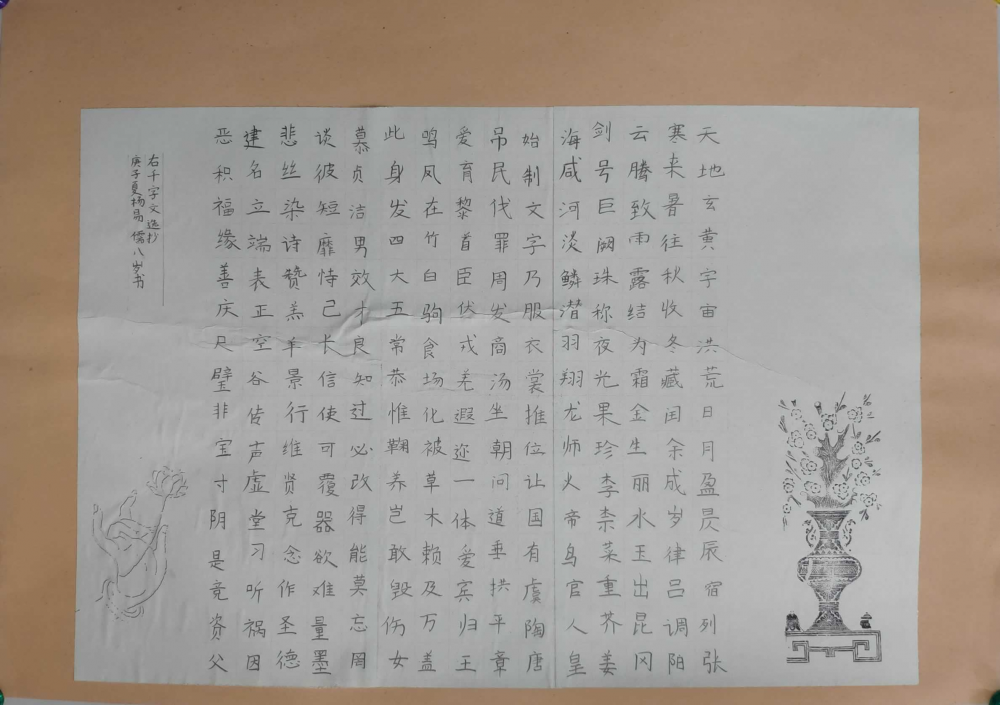 天地玄黄宇宙洪荒日月盈昃辰宿列张
寒来暑往秋收冬藏闰余成岁律吕调阳
云腾致雨露结为霜金生丽水王出昆冈
剑号巨阙珠称夜光果珍李柰菜重芥姜
海咸河淡鳞潜羽翔龙师火帝鸟官人皇
始制文字乃服衣裳推位让国有虞陶唐
吊民伐罪周发商汤坐朝问道垂拱平章
爱育黎首臣伏戎羌遐迩一体爱宾归王
鸣凤在竹白驹食场化被草木赖及万盖
此身发四大五常恭惟鞠养岂敢毁伤女
慕贞洁男效才良知过必改得能莫忘罔
谈彼短靡恃己长信使可覆器欲难量墨
悲丝染诗赞羔羊景行维贤克念作圣德
建名立端表正空谷传声虚堂习听祸因
恶积福缘善庆尺璧非宝寸阴是竞资父
右千字文选抄
庚子夏杨易儒八岁书